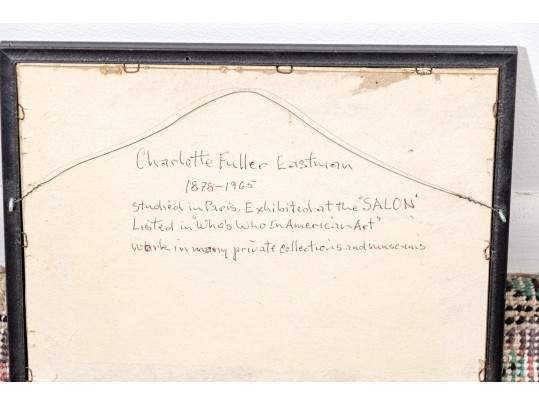 Charlotte Fuller Eastman
1878-1965
Studied in Paris. Exhibited at the "SALON"
Listed in "Who's Who In American Art"
work in many private collections and museums